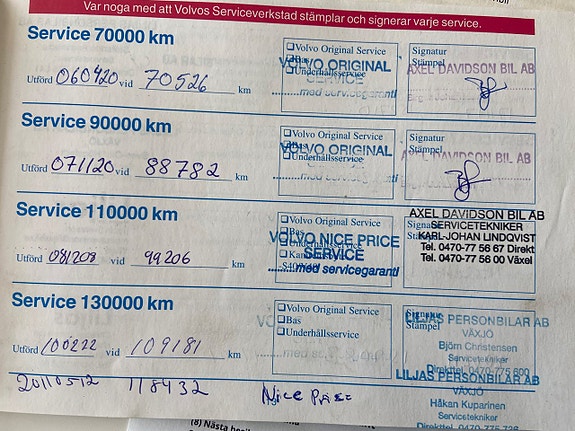 Var noga med att Volvos Serviceverkstad stämplar och signerar varje service.
Service 70000 km
Utförd 060420 vid 70526 km
Volvo Original Service
Bas
Underhållsservice
VOLVO ORIGINAL
SERVICE
med servicegaranti
Signatur
Stämpel
AXEL DAVIDSON BIL AB
Service 90000 km
Utförd 071120 vid 88782 km
Volvo Original Service
Bas
Underhållsservice
VOLVO ORIGINAL
Signatur
Stämpel
AXEL DAVIDSON BIL AB
Service 110000 km
Utförd 081208 vid 99206 km
Volvo Original Service
Bas
Underhållsservice
VOLVO NICE PRICE
SERVICE
med servicegaranti
Signatur
Stämpel
AXEL DAVIDSON BIL AB
SERVICETEKNIKER
KARL-JOHAN LINDQVIST
Tel. 0470-77 56 67 Direkt
Tel. 0470-77 56 00 Växel
Service 130000 km
Utförd 100222 vid 109181 km
Volvo Original Service
Bas
Underhållsservice
Signatur
Stämpel
LILJAS PERSONBILAR AB
VÄXJÖ
Björn Christensen
Servicetekniker
Direkttel. 0470-775 600
20110512 118432 Nice Price
LILJAS PERSONBILAR AB
VÄXJÖ
Håkan Kuparinen
Servicetekniker
(8) Nästa